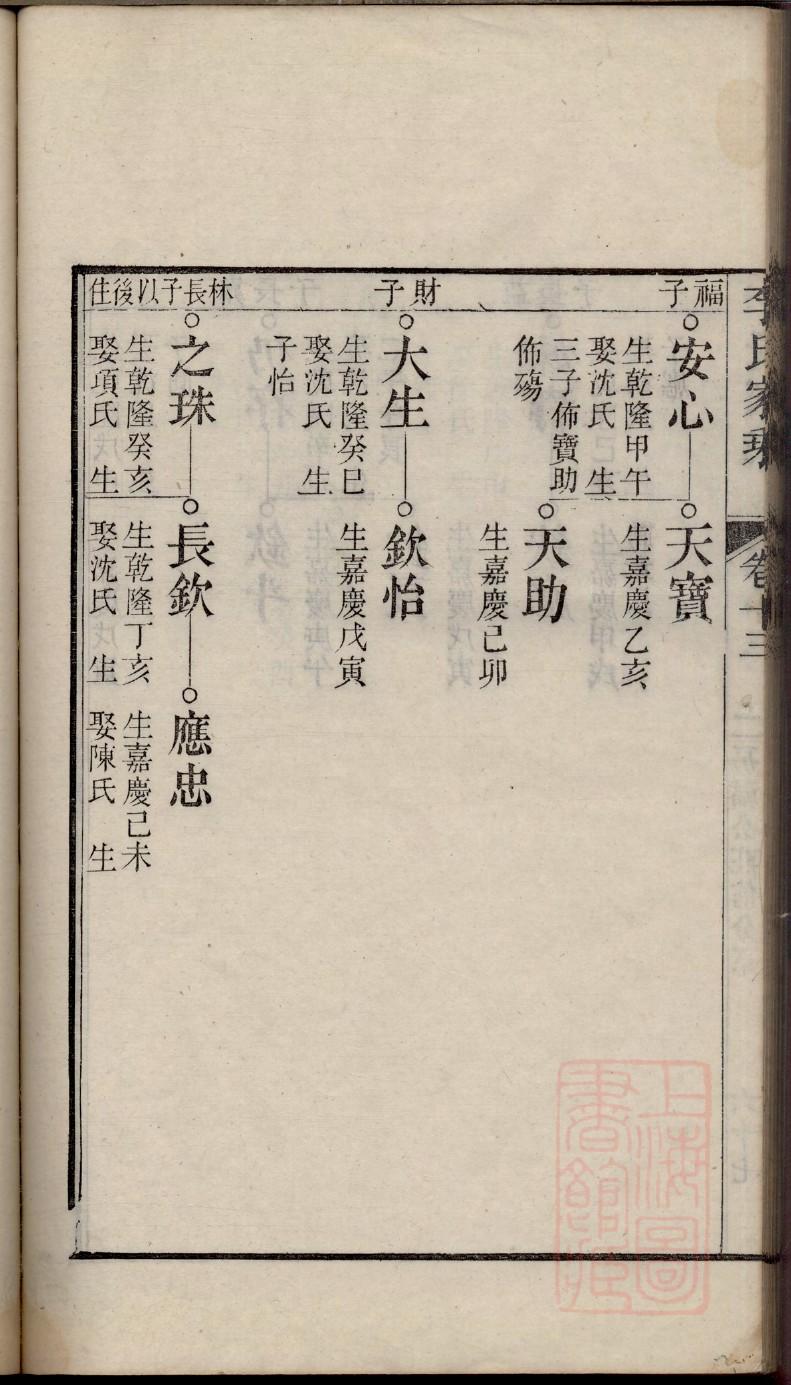 李氏家
卷十三
福子
安心
生乾隆甲午
娶沈氏 生
三子佈寶助
佈殤
天寶
生嘉慶乙亥
天助
生嘉慶己卯
財子
大生
生乾隆癸巳
娶沈氏 生
子怡
欽怡
生嘉慶戊寅
林長子以後住
之珠
生乾隆癸亥
娶項氏 生
長欽
生乾隆丁亥
娶沈氏 生
應忠
生嘉慶己未
娶陳氏 生
上海圖書館藏